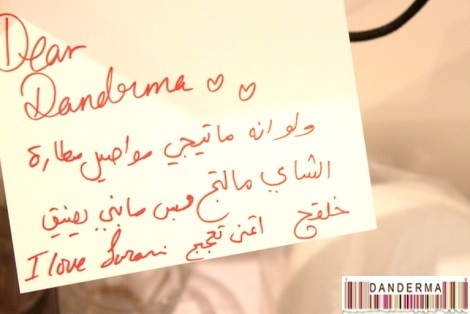 Dear
Danderma ♡ ♡
ولو انه ماتيجي مواصيل مطارة
الشاي مالتج بس مابي يضيق
خلقج اتمنى تعجبج
I love
DANDERMA